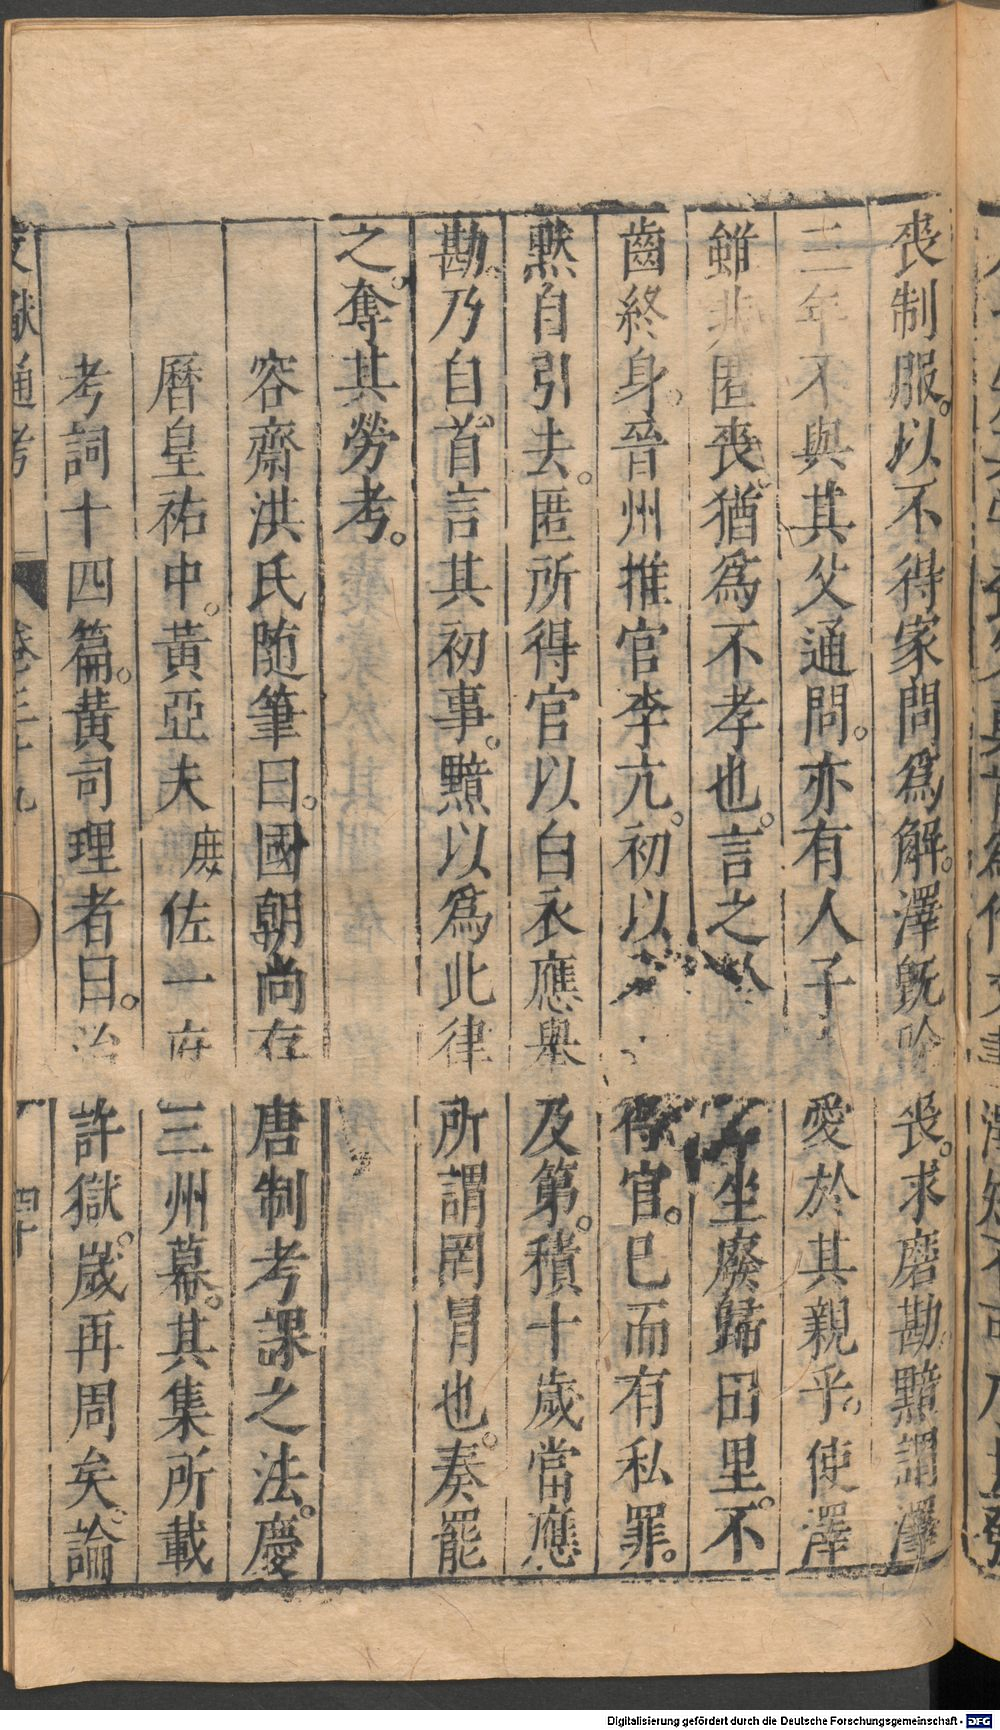 喪制服。以不得家問爲解。澤既除喪。求磨勘。黯謂澤
三年不與其父通問。亦有人子愛於其親乎。使澤
雖非匿喪。猶爲不孝也。言之坐廢歸田里。不
齒終身。晉州推官李亢。初以得官。巳而有私罪。
黙自引去。匿所得官以白衣應舉及第。積十歲當應
勘。乃自。首言其初事。黯以爲此律所謂罔冒也。奏罷
之。奪其勞考。
容齋洪氏随筆曰。國朝尚存唐制考課之法。慶
曆皇祐中。黃亞夫庶佐一府三州幕。其集所載
考詞十四篇。黃司理者曰。治許獄。歲再周矣。論
文獻通考 卷三十九 四十
Digitalisierung gefördert durch die Deutsche Forschungsgemeinschaft - DFG